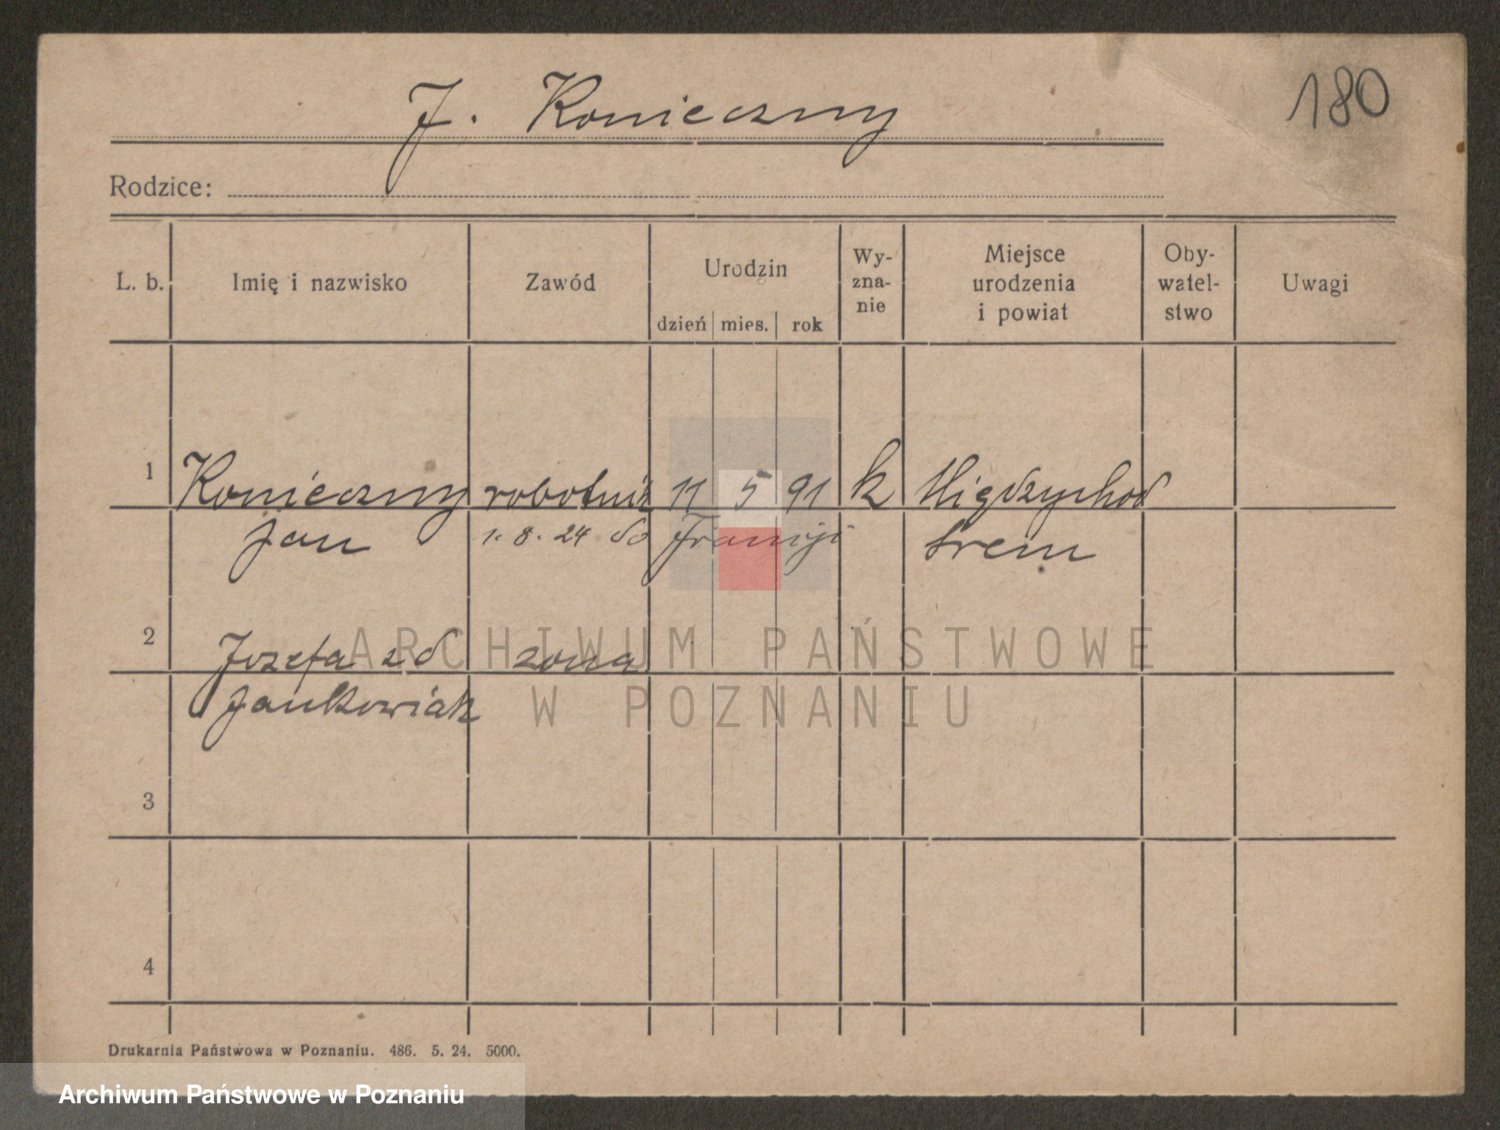 180
J. Konieczny
Rodzice:
L. b. Imię i nazwisko Zawód Urodzin dzień mies. rok Wy-zna-nie Miejsce urodzenia i powiat Oby-watel-stwo Uwagi
1 Konieczny robotnik 11 5 91 k Międzychod
Jan 1. 8. 24 do Francji Srem
2 Jozefa zd zona
Jankowiak
3
4
ARCHIWUM PAŃSTWOWE
W POZNANIU
Drukarnia Państwowa w Poznaniu. 486. 5. 24. 5000.
Archiwum Państwowe w Poznaniu